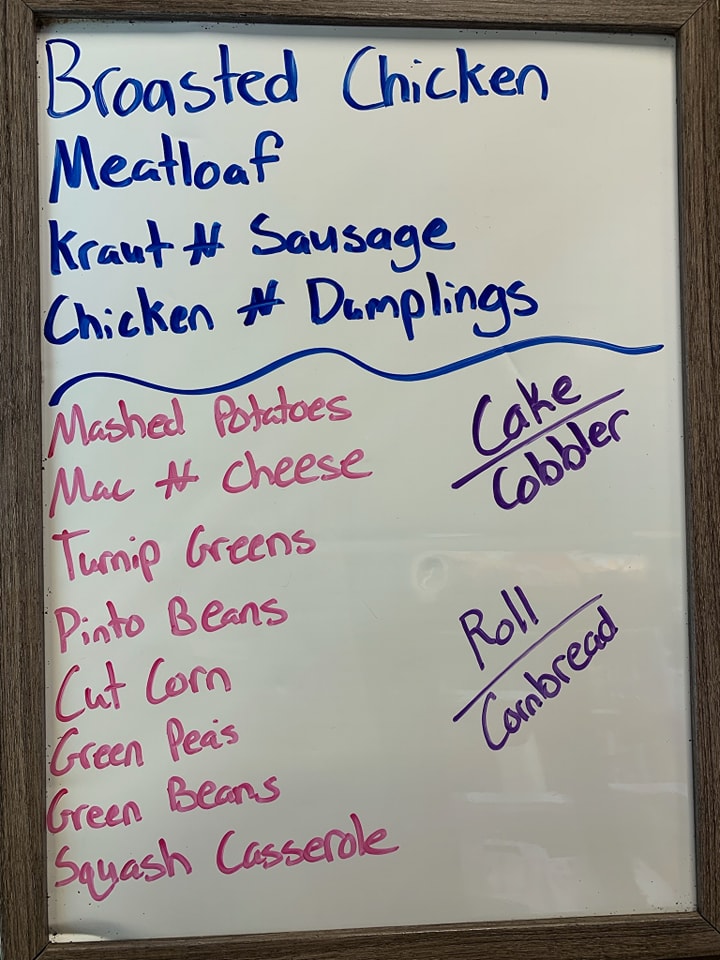 Broasted Chicken
Meatloaf
Kraut N Sausage
Chicken N Dumplings
Mashed Potatoes
Mac N Cheese
Turnip Greens
Pinto Beans
Cut Corn
Green Peas
Green Beans
Squash Casserole
Cake
Cobbler
Roll
Cornbread